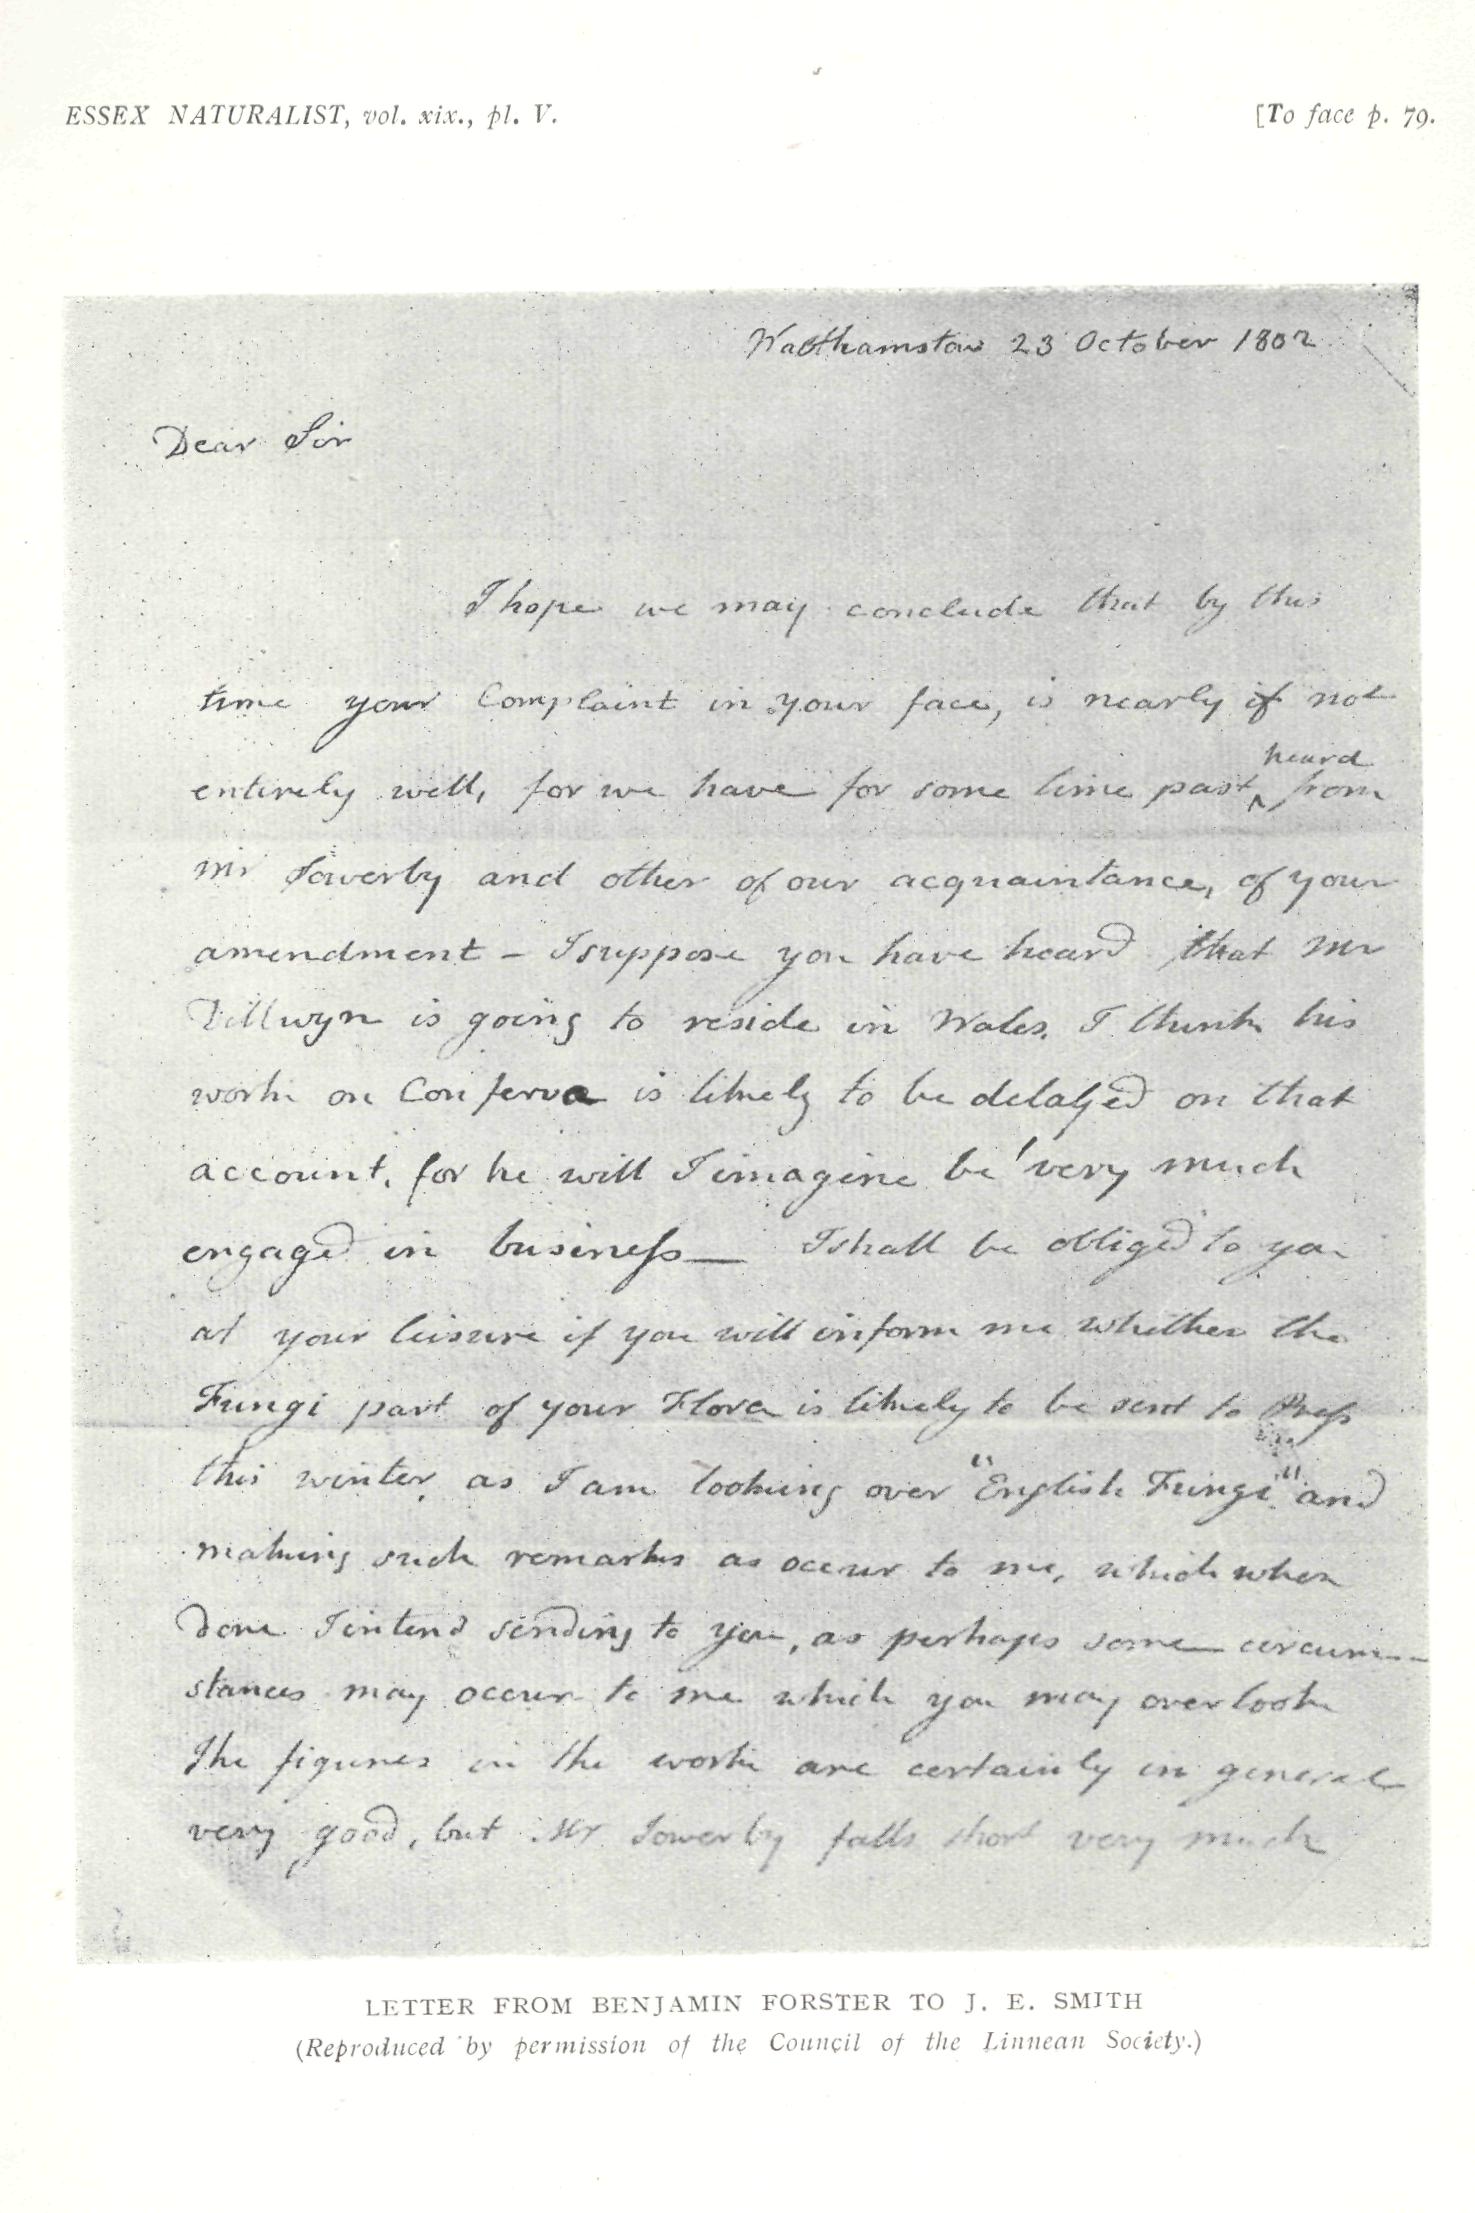 ESSEX NATURALIST, vol. xix., pl. V.
[To face p. 79.
Walthamstow 23 October 1802
Dear Sir
I hope we may conclude that by this
time your Complaint in your face, is nearly if not
entirely well, for we have for some time past ^ heard from
Mr Sowerby and other of our acquaintance, of your
amendment – I suppose you have heard that Mr
Dillwyn is going to reside in Wales. I think his
work on Conferva is likely to be delayed on that
account, for he will I imagine be very much
engaged in business — I shall be obliged to you
at your leisure if you will inform me whether the
Fungi part of your Flora is likely to be sent to Press
this winter, as I am looking over "English Fungi" and
making such remarks as occur to me, which when
done I intend sending to you, as perhaps some circum-
stances may occur to me which you may overlook
The figures in the work are certainly in general
very good, but Mr Sowerby falls short very much
LETTER FROM BENJAMIN FORSTER TO J. E. SMITH
(Reproduced by permission of the Council of the Linnean Society.)